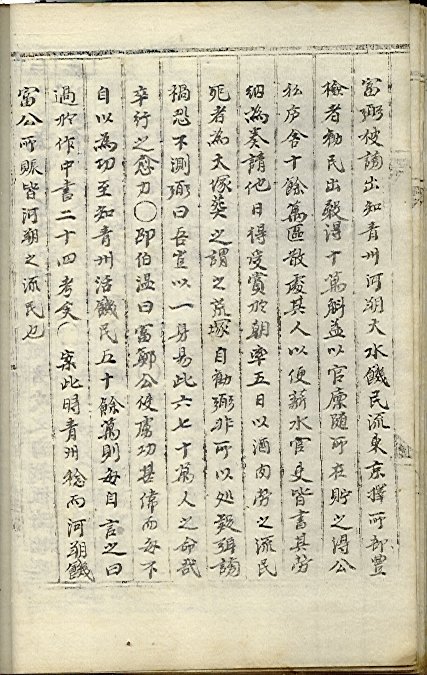 富弼被謫出知青州河朔大水饑民流東京擇所部豊
稔者勸民出穀得十萬斛益以官廩隨所在貯之得公
私庐舍十餘萬區散處其人以便薪水官吏皆書其勞
納為奏請他日得受賞於朝率五日以酒肉勞之流民
死者為大塚葬之謂之荒塚自勸弼非所以処疑弭謗
禍忍不測弼曰吾豈以一身易此六七十萬人之命哉
卒行之愈力〇邵伯温曰富鄭公使虜功甚偉而每不
自以為功至知青州活饑民五十餘萬則每自言之曰
過於作中書二十四考矣〇案此時青州稔而河朔饑
富公所賑皆河朔之流民也